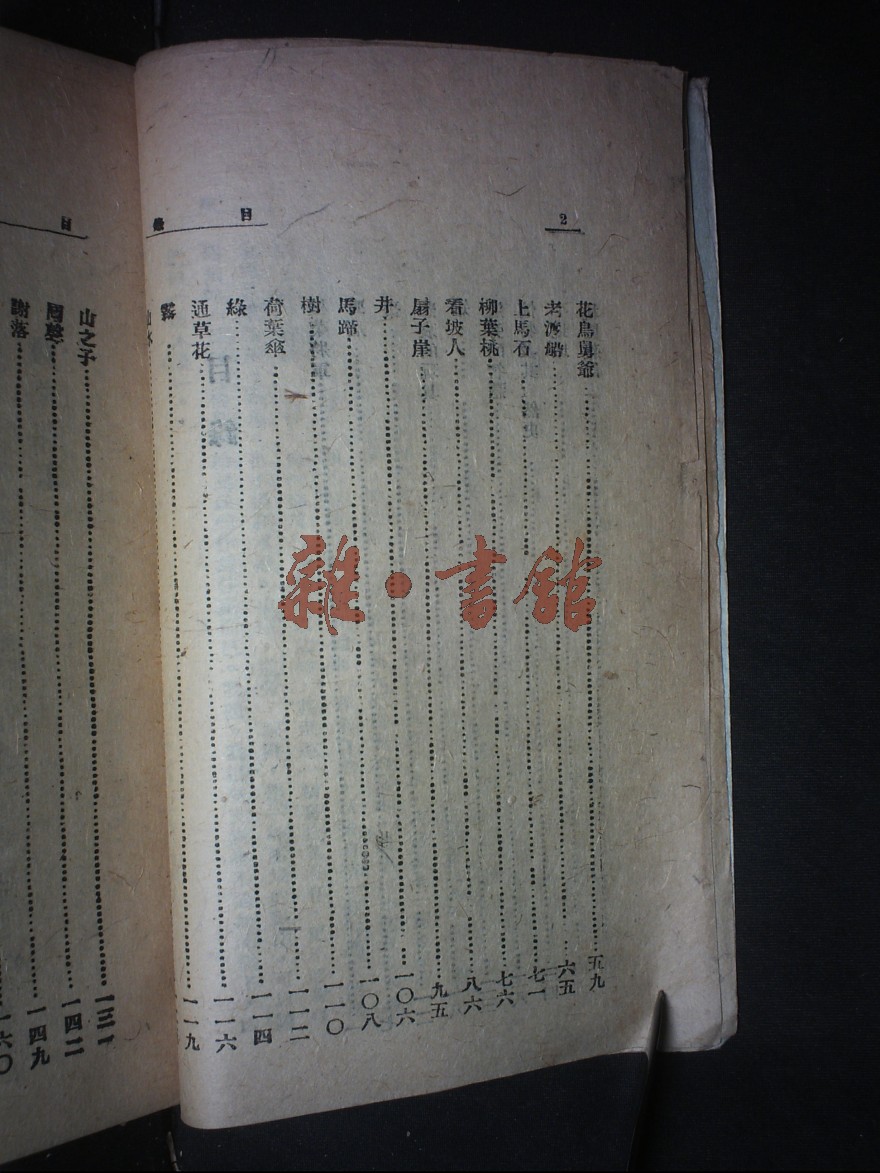 2
目錄
花鳥舅爺……五九
老渡船……六五
上馬石……七一
柳葉桃……七六
看坡人……八六
扇子崖……九五
井……一〇六
馬蹄……一〇八
樹……一一〇
荷葉傘……一一二
綠……一一四
通草花……一一六
霧……一一九
山水
目
山之子……一三
回聲……一四二
謝落……一四九
一六〇
雜·書館